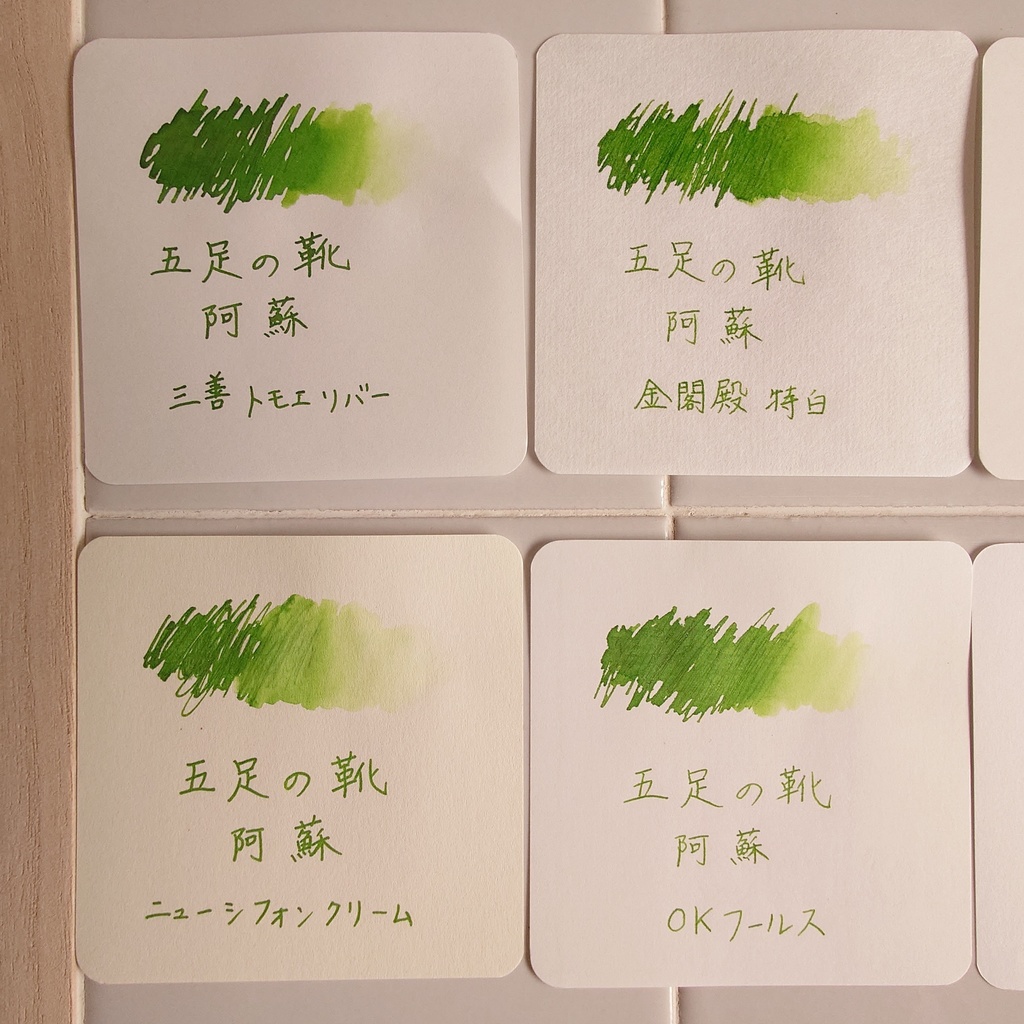 五足の靴
阿蘇
三善トモエリバー
五足の靴
阿蘇
金閣殿 特白
五足の靴
阿蘇
ニューシフォンクリーム
五足の靴
阿蘇
OKフールス